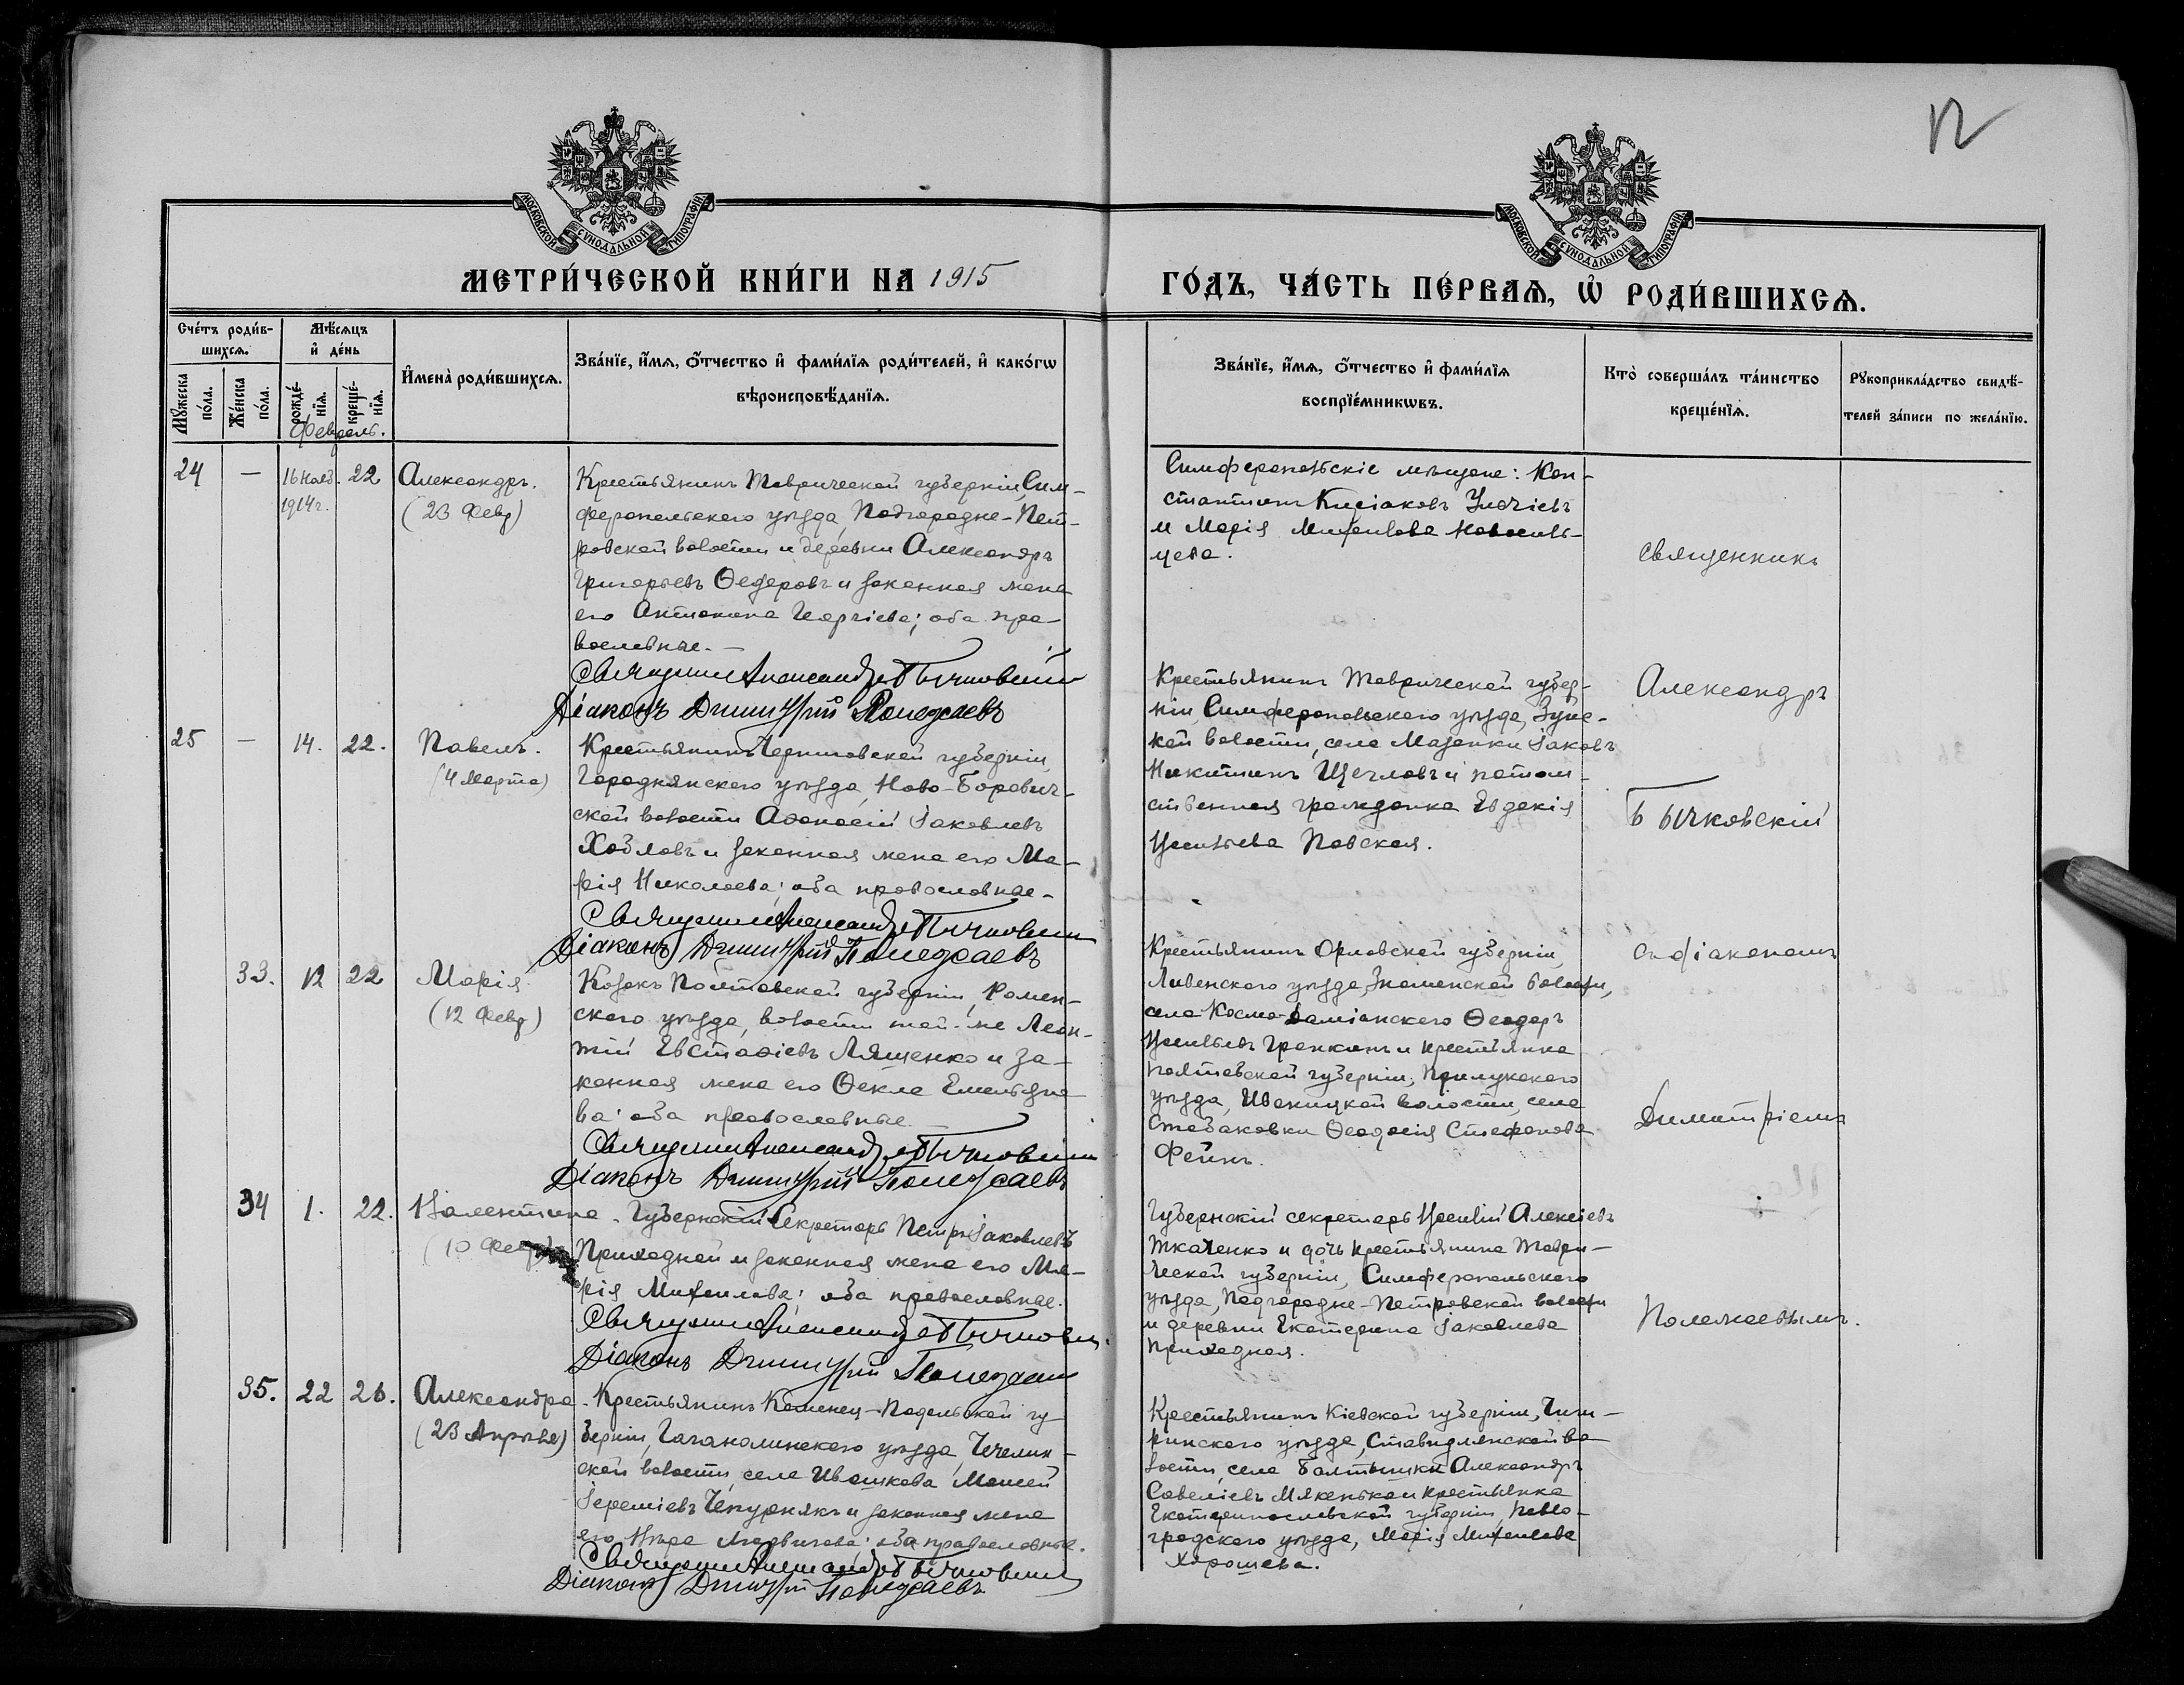 12
МОСКОВСКОЙ СѴНОДАЛЬНОЙ ТИПОГРАФІИ
МОСКОВСКОЙ СѴНОДАЛЬНОЙ ТИПОГРАФІИ
МЕТРИ́ЧЕСКОЙ КНИ́ГИ НА 1915
ГО́ДЪ, ЧА́СТЬ ПЕ́РВАѦ, Ѡ҆ РОДИ́ВШИХСѦ.
Сче́тъ роди́в-
шихсѧ.
Мꙋ́жеска
по́ла.
Же́нска
по́ла.
Мѣ́сѧцъ
и҆ де́нь
рожде́-
нїѧ.
креще́-
нїѧ.
Февраль.
И҆мена̀ роди́вшихсѧ.
Зва́нїе, и҆́мѧ, ѻ҆́тчество и҆ фами́лїѧ роди́телей, и҆ како́гѡ
вѣроисповѣ́данїѧ.
Зва́нїе, и҆́мѧ, ѻ҆́тчество и҆ фами́лїѧ
воспрїе́мникѡвъ.
Кто̀ соверша́лъ та́инство
креще́нїѧ.
Рꙋкоприкла́дство свидѣ́-
телей за́писи по жела́нїю.
24 — 16 Нояб. 1914 г. 22 Александръ.
(23 Февр)
Крестьянинъ Таврической губерніи, Сим-
феропольского уѣзда, Подгородне-Пет-
ровской волости и деревни Александръ
Григорьевъ Ѳедоровъ и законная жена
его Антонина Георгіева; оба пра-
вославные. —
Священникъ Александръ Бычковскій
Діаконъ Димитрій Полежаевъ
Симферопольскіе мѣщане: Кон-
стантинъ Киріаковъ
и Марія Михаилова Новосель-
цева.
25 — 14. 22. Павелъ.
(4 Марта)
Крестьянинъ Черниговской губерніи,
Городнянского уѣзда, Ново-Борович-
ской волости Аѳанасій Іаковлевъ
Хобловъ и законная жена его Ма-
рія Николаева; оба православные.
Священникъ Александръ Бычковскій
Діаконъ Димитрій Полежаевъ
Крестьянинъ Таврической губер-
ніи, Симферопольского уѣзда, Зуйс-
кой волости, села Мазанки Іаковъ
Никитинъ Щегловъ и потом-
ственная гражданка Евдокія
Васильева Павская.
33. 12 22 Марія
(12 Февр)
Козакъ Полтавской губерніи, Ромен-
ского уѣзда, волости той-же Леон-
тій Евстаѳіевъ Лященко и за-
конная жена его Ѳекла Емельяно-
ва; оба православные.
Священникъ Александръ Бычковскій
Діаконъ Димитрій Полежаевъ
Крестьянинъ Орловской губерніи,
Ливенского уѣзда, Знаменской волости,
села Космо-Даміанского Ѳеодоръ
Васильевъ Гранкинъ и крестьянка
Полтавской губерніи, Прилукского
уѣзда, Иваницкой волости, села
Ѳеодосія Стефанова
Фейнъ.
34 1. 22. Валентина
(10 Февр)
Губернскій Секретарь Петръ Іаковлевъ
Приходной и законная жена его Ма-
рія Михаилова; оба православные.
Священникъ Александръ Бычковскій
Діаконъ Димитрій Полежаевъ
Губернскій секретарь Василій Алексіевъ
Ткаченко и дочь крестьянина Таври-
ческой губерніи, Симферопольского
уѣзда, Подгородне-Петровской волости
и деревни Екатерина Іаковлева
Приходная.
35. 22 26. Александра
(23 Апрѣля)
Крестьянинъ Каменец-Подольской гу-
берніи, уѣзда,
ской волости, села Ивашкова Моисей
Іереміевъ Чепурнякъ и законная жена
его Вѣра; оба православные.
Священникъ Александръ Бычковскій
Діаконъ Димитрій Полежаевъ
Крестьянинъ Кіевской губерніи, Чиги-
ринского уѣзда, Ставидлянской во-
лости, села Балтышки Александръ
Савеліевъ и крестьянка
Екатеринославской губерніи, Павло-
градского уѣзда, Марія Михаилова
Хорошева.
Священникъ
Александръ
Бычковскій
съ діакономъ
Димитріемъ
Полежаевымъ.